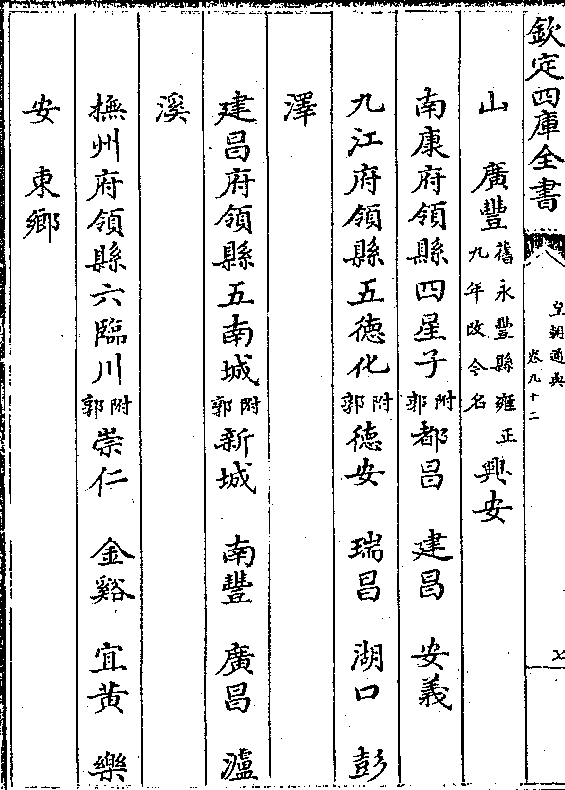 欽定四庫全書
皇朝通典
卷九十二
七
山　廣豐舊永豐縣雍正九年改今名興安
南康府領縣四星子附郭都昌　建昌　安義
九江府領縣五德化附郭德安　瑞昌　湖口　彭
澤
建昌府領縣五南城附郭新城　南豐　廣昌　瀘
溪
撫州府領縣六臨川附郭崇仁　金谿　宜黄　樂
安　東鄉